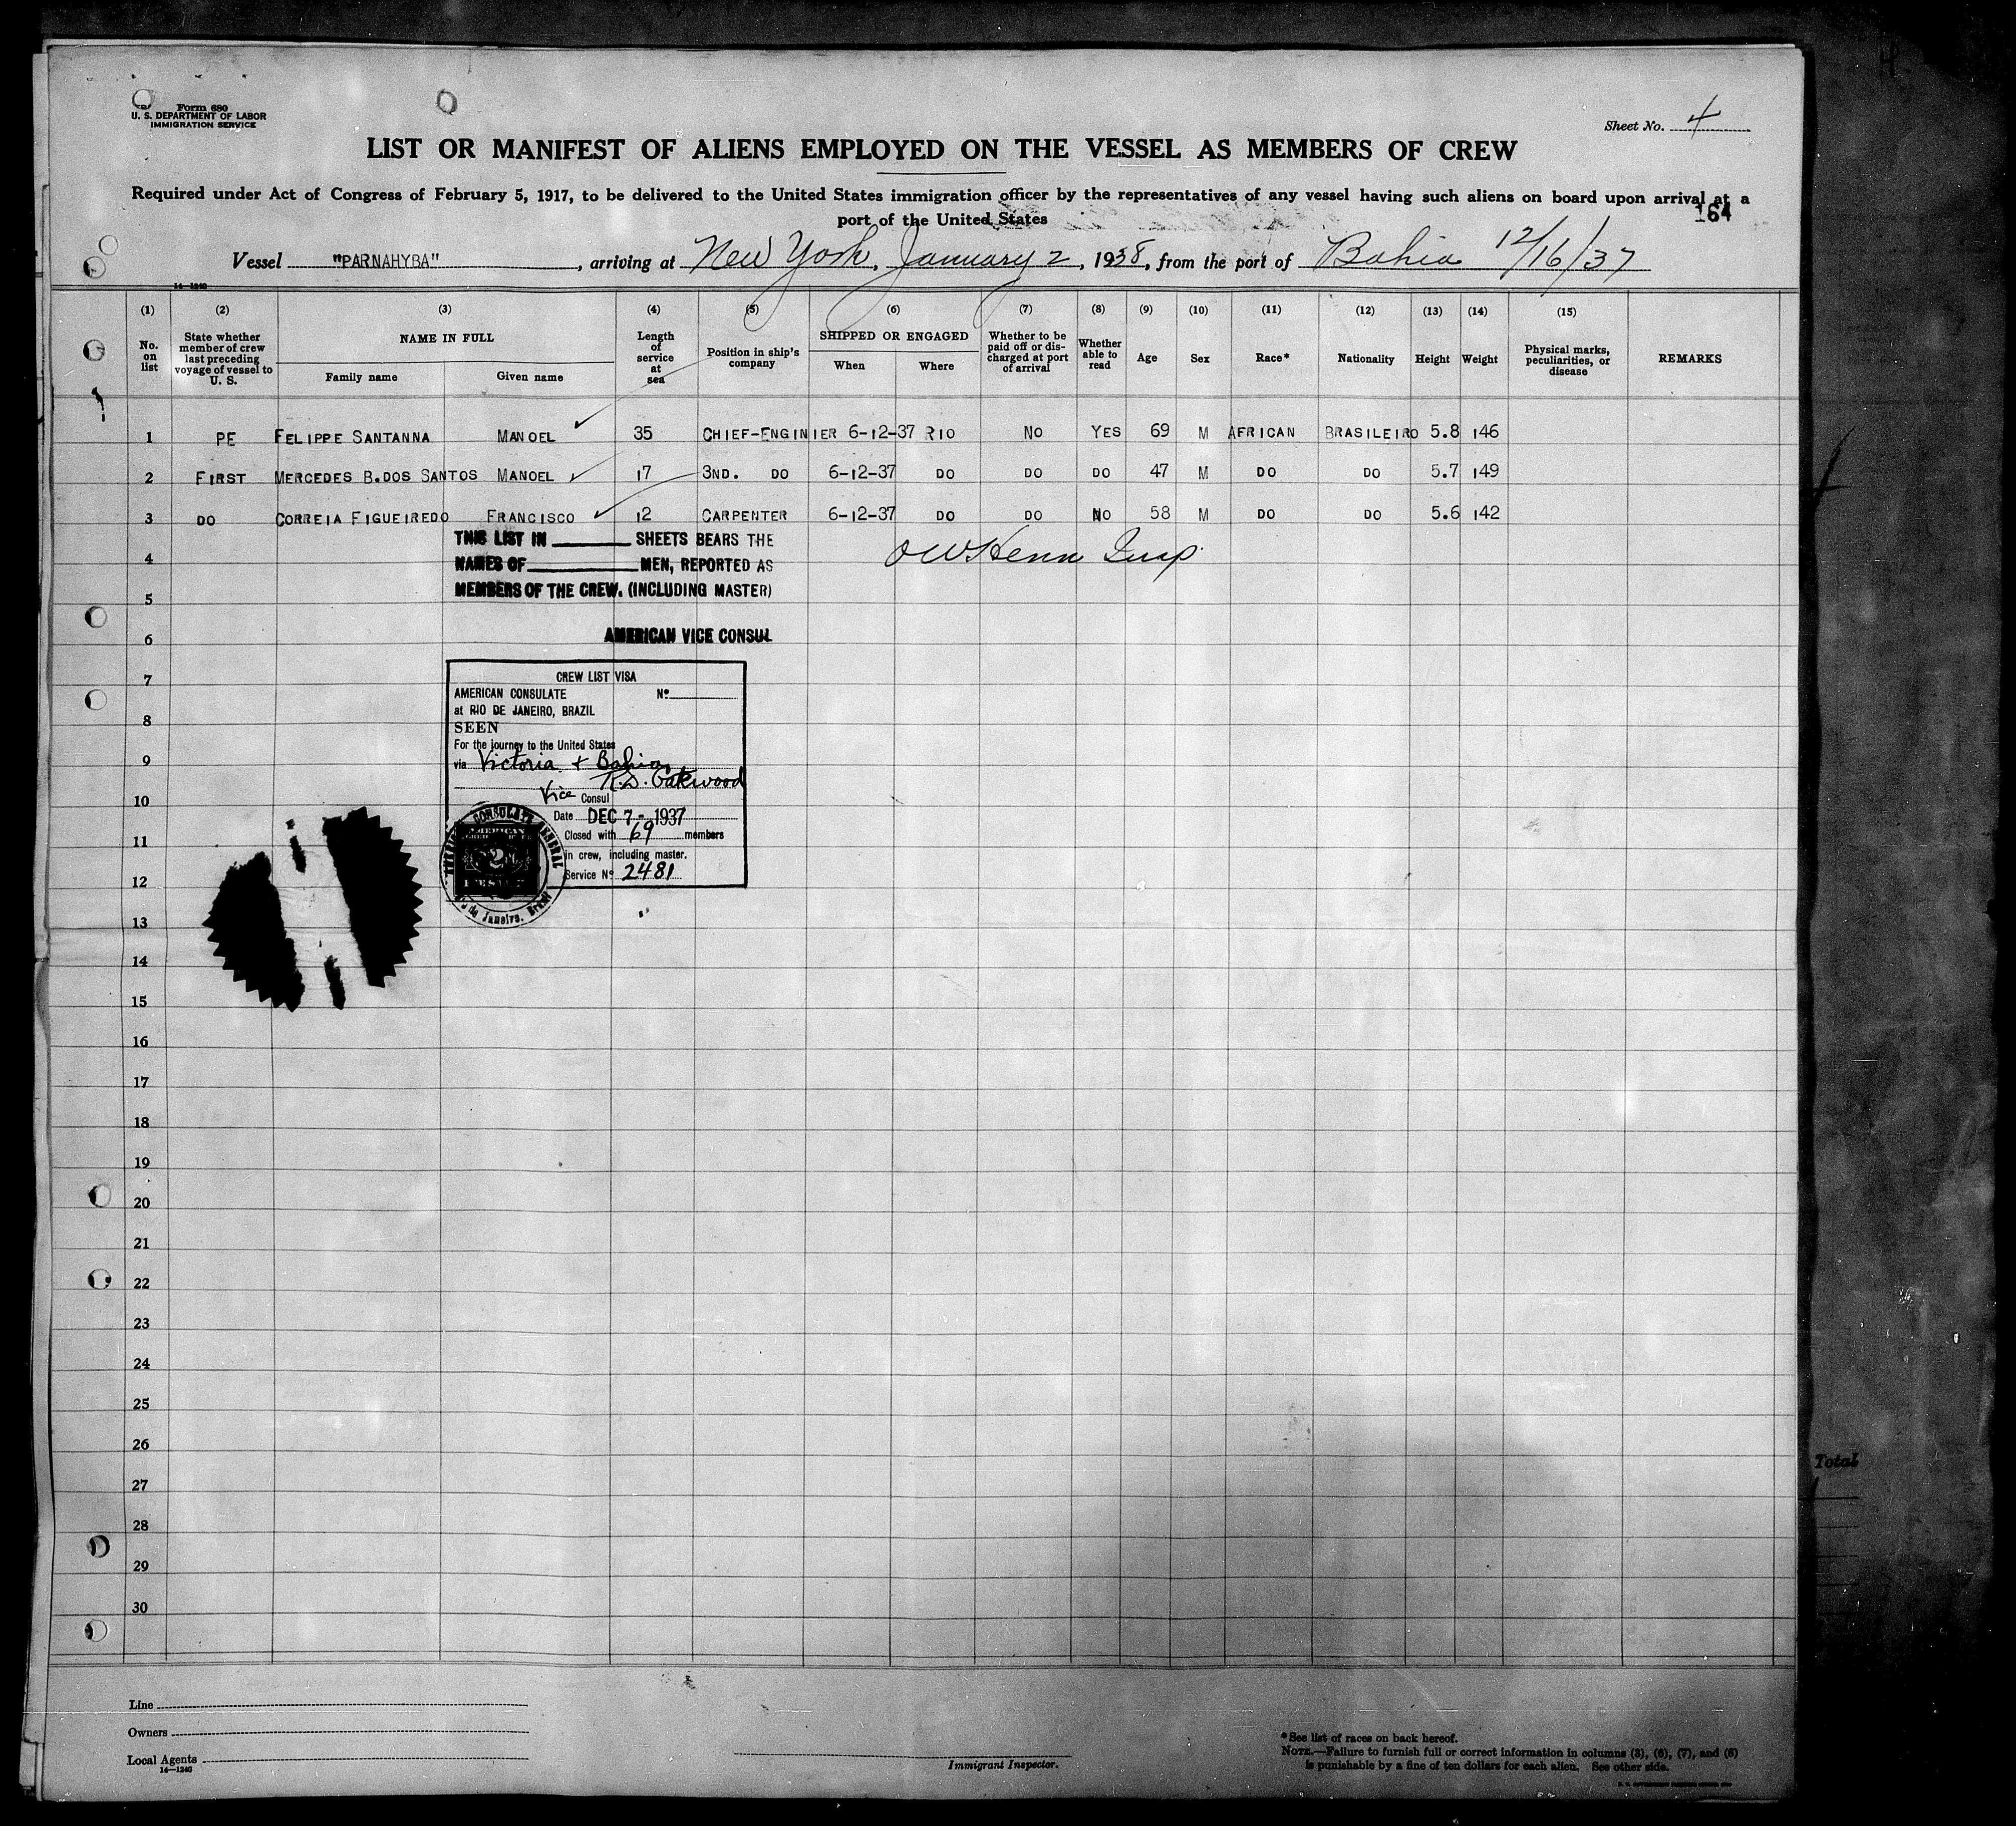 Form 680
U. S. DEPARTMENT OF LABOR
IMMIGRATION SERVICE
Sheet No. 4
LIST OR MANIFEST OF ALIENS EMPLOYED ON THE VESSEL AS MEMBERS OF CREW
Required under Act of Congress of February 5, 1917, to be delivered to the United States immigration officer by the representatives of any vessel having such aliens on board upon arrival at a
port of the United States
164
Vessel "PARNAHYBA", arriving at New York, January 2, 1938, from the port of Bahia 12/16/37
14—1240
(1) (2) (3) (4) (5) (6) (7) (8) (9) (10) (11) (12) (13) (14) (15)
No. on list State whether member of crew last preceding voyage of vessel to U. S. NAME IN FULL Family name Given name Length of service at sea Position in ship's company SHIPPED OR ENGAGED When Where Whether to be paid off or discharged at port of arrival Whether able to read Age Sex Race* Nationality Height Weight Physical marks, peculiarities, or disease REMARKS
1 PE FELIPPE SANTANNA MANOEL 35 CHIEF-ENGINIER 6-12-37 RIO NO YES 69 M AFRICAN BRASILEIRO 5.8 146
2 FIRST MERCEDES B.DOS SANTOS MANOEL 17 3ND. DO 6-12-37 DO DO DO 47 M DO DO 5.7 149
3 DO CORREIA FIGUEIREDO FRANCISCO 12 CARPENTER 6-12-37 DO DO NO 58 M DO DO 5.6 142
THIS LIST IN SHEETS BEARS THE
NAMES OF MEN, REPORTED AS
MEMBERS OF THE CREW. (INCLUDING MASTER)
AMERICAN VICE CONSUL
OWHenn Insp.
4
5
6
7
8
9
10
11
12
13
14
15
16
17
18
19
20
21
22
23
24
25
26
27
28
29
30
CREW LIST VISA
AMERICAN CONSULATE No
at RIO DE JANEIRO, BRAZIL
SEEN
For the journey to the United States
via Victoria + Bahia
R.D. Oakwood
Vice Consul
Date DEC 7- 1937
Closed with 69 members
in crew, including master.
Service No 2481
CONSULATE GENERAL
2
de Janeiro, Brazil
Total
Line
Owners
Local Agents
14—1240
Immigrant Inspector.
*See list of races on back hereof.
NOTE.—Failure to furnish full or correct information in columns (3), (6), (7), and (8)
is punishable by a fine of ten dollars for each alien. See other side.